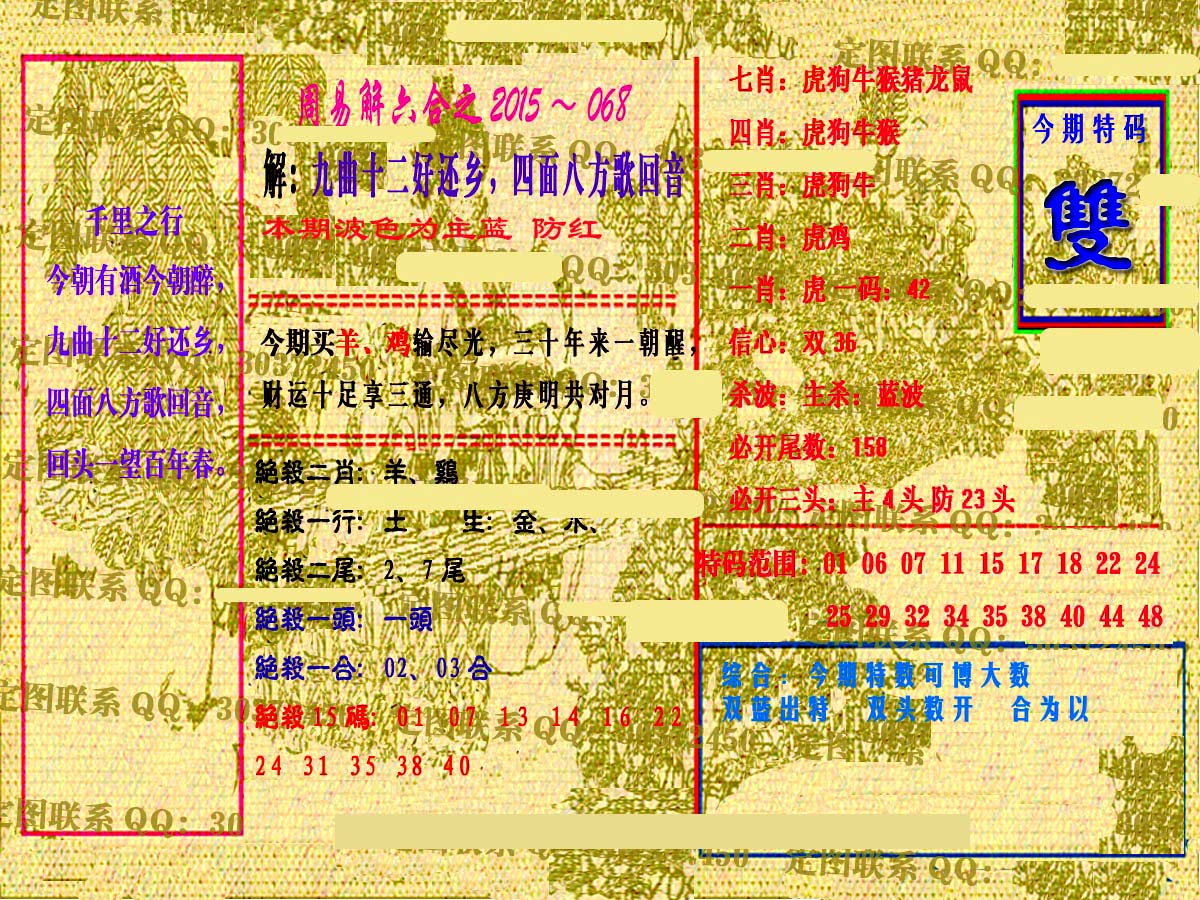 千里之行
今朝有酒今朝醉，
九曲十二好还乡，
四面八方歌回音，
回头一望百年春。
周易解六合之 2015～068
解：九曲十二好还乡，四面八方歌回音
本期波色为主蓝 防红
今期买羊、鸡输尽光，三十年来一朝醒，
财运十足享三通，八方庚明共对月。
絕殺二肖：羊、鷄
絕殺一行：土 生：金、木、
絕殺二尾：2、7尾
絕殺一頭：一頭
絕殺一合：02、03合
絕殺15碼：01 07 13 14 16 22
24 31 35 38 40
七肖：虎狗牛猴猪龙鼠
四肖：虎狗牛猴
三肖：虎狗牛
二肖：虎鸡
一肖：虎一码：42
信心：双36
杀波：主杀：蓝波
必开尾数：158
必开三头：主4头防23头
今期特码
雙
特码范围：01 06 07 11 15 17 18 22 24
25 29 32 34 35 38 40 44 48
综合：今期特数可博大数
双蓝出特，双头数开 合为以
定图联系 QQ：